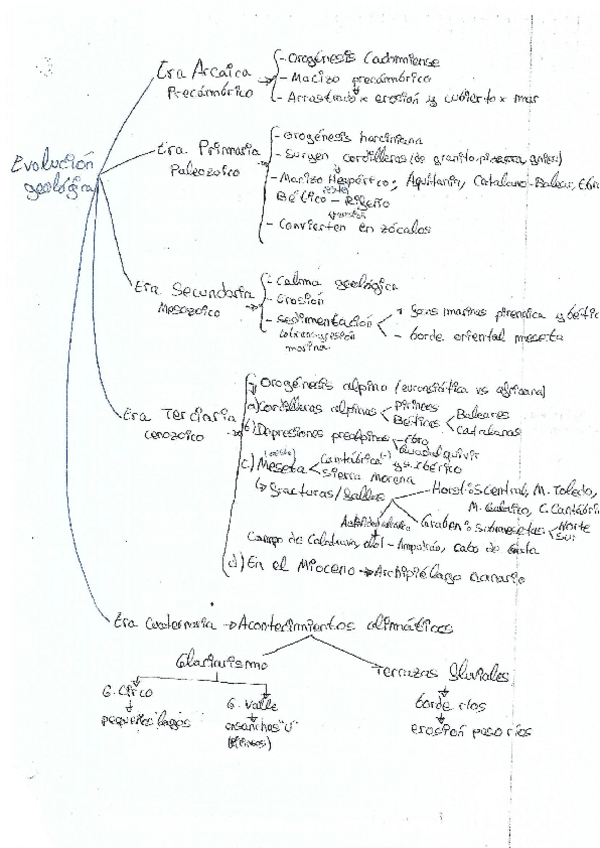 Evolución
geológica
Era Arcaica
Precámbrico
- Orogénesis Cadomiense
- Macizo precámbrico
- Arrastrado x erosión y cubierto x mar
Era Primaria
Paleozoico
- Orogénesis herciniana
- Surgen cordilleras (de granito, pizarra, gneis)
- Macizo Hespérico; Aquitania, Catalano-Balear, Ebro
Bético - Rifeño
- Convierten en zócalos
Era Secundaria
Mesozoico
- Calma geológica
- Erosión
- Sedimentación
marina
fosas marinas pirenaica y bética
- borde oriental meseta
Era Terciaria
Cenozoico
Orogénesis alpina (euroasiática vs africana)
a) Cordilleras alpinas
Pirineos
Béticas
Baleares
Catalanas
b) Depresiones prealpinas
Ebro
Guadalquivir
c) Meseta
Cantábrica
y S. Ibérico
Sierra Morena
fracturas/fallas
Horsts: S. Central, M. Toledo,
M. Galaico, C. Cantábrica
Graben: submesetas
Norte
Sur
Campo de Calatrava, Olot - Ampurdán, cabo de Gata
d) En el Mioceno → Archipiélago canario
Era Cuaternaria → Acontecimientos climáticos
Glaciarismo
Terrazas fluviales
G. Circo
pequeños lagos
G. Valle
ensanchas "U"
(Pirineos)
borde ríos
erosión paso ríos